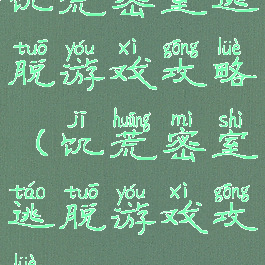 饥荒密室逃
tuō yóu xì gōng lüè
脱游戏攻略
jī huāng mì shì
（饥荒密室
táo tuō yóu xì gōng
逃脱游戏攻
lüè